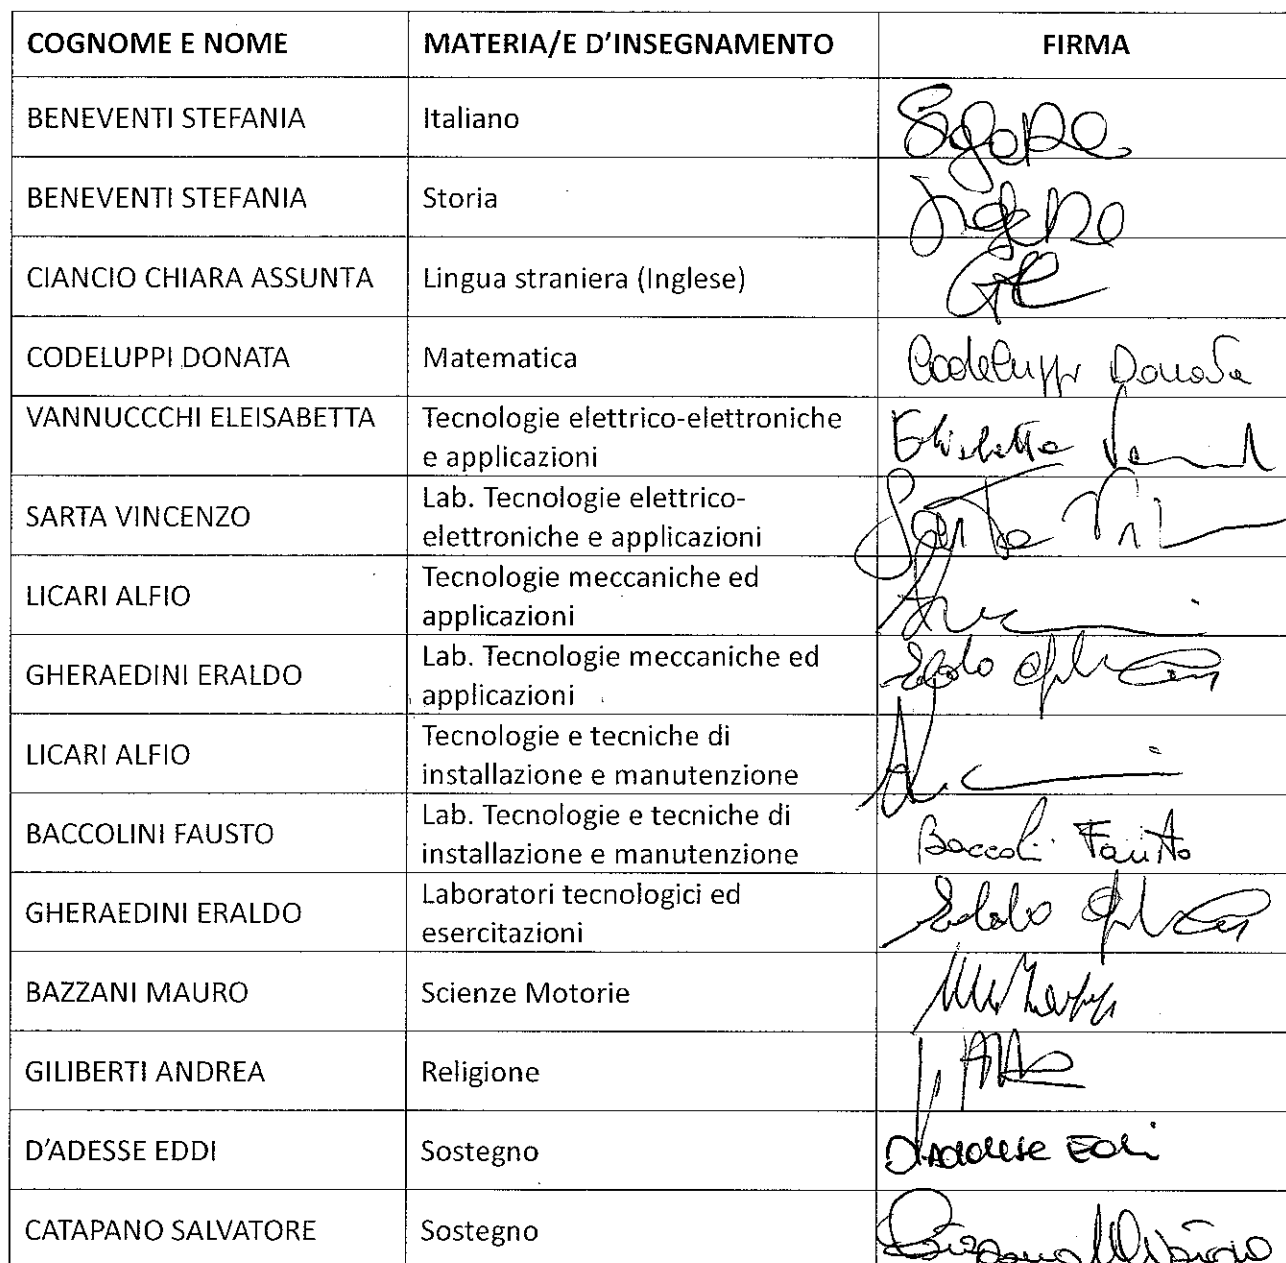 COGNOME E NOME MATERIA/E D'INSEGNAMENTO FIRMA
BENEVENTI STEFANIA Italiano
BENEVENTI STEFANIA Storia
CIANCIO CHIARA ASSUNTA Lingua straniera (Inglese)
CODELUPPI DONATA Matematica Codeluppi Donata
VANNUCCCHI ELEISABETTA Tecnologie elettrico-elettroniche
e applicazioni Elisabetta
SARTA VINCENZO Lab. Tecnologie elettrico-
elettroniche e applicazioni Sarta
LICARI ALFIO Tecnologie meccaniche ed
applicazioni
GHERAEDINI ERALDO Lab. Tecnologie meccaniche ed
applicazioni
LICARI ALFIO Tecnologie e tecniche di
installazione e manutenzione
BACCOLINI FAUSTO Lab. Tecnologie e tecniche di
installazione e manutenzione Fausto
GHERAEDINI ERALDO Laboratori tecnologici ed
esercitazioni
BAZZANI MAURO Scienze Motorie
GILIBERTI ANDREA Religione
D'ADESSE EDDI Sostegno D'Addese Eddi
CATAPANO SALVATORE Sostegno